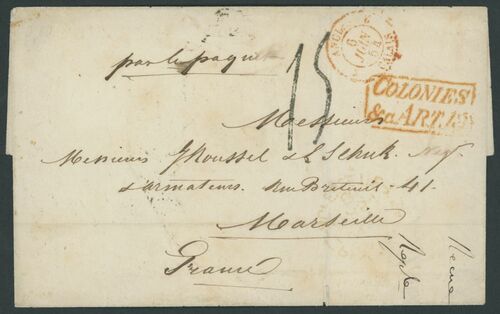 par le paquet
15
ANGL.
6
JUIN
54
CALAIS
COLONIES
&c. ART. 13
Messieurs
Messieurs J Roussel & L Schuk. Neg.
& armateurs. Rue Breteuil. 41.
Marseille
France